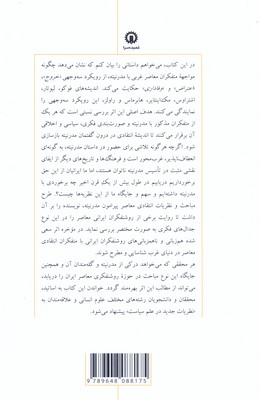 قصیده‌سرا
در این کتاب، می‌خواهم داستانی را بیان کنم که نشان می‌دهد چگونه
مواجههٔ متفکران معاصر غربی با مدرنیته، از رویکرد سه‌وجهی «خروج»،
«اعتراض» و «وفاداری» حکایت می‌کند. اندیشه‌های فوکو، لیوتار،
اشتراوس، مک‌اینتایر، هابرماس و راولز، این رویکرد سه‌وجهی را
نمایندگی می‌کنند. هدف اصلی این اثر بررسی نسبتی است که هر یک
از متفکران مذکور با مدرنیته و صورت‌بندی فکری، سیاسی و اخلاقی
آن برقرار می‌کنند تا اندیشهٔ انتقادی در درون گفتمان مدرنیته بازسازی
شود. اگرچه هرگونه تلاشی برای حضور در داستان مدرنیته، به گونه‌ای
انعطاف‌ناپذیر، غرب‌محور است و فرهنگ‌ها و تاریخ‌های دیگر از ایفای
نقشی مثبت در تأسیس مدرنیته ناتوان هستند، اما ما ایرانیان از این حق
برخورداریم دریابیم در طول بیش از یک قرن اخیر چه برخوردی با
مدرنیته داشته‌ایم و سهم و جایگاه ما از این نظریه‌ها چیست؟ طرح
مباحث و نظریات انتقادی معاصر پیرامون مدرنیته، نویسنده را بر آن
داشت تا روایت برخی از روشنفکران ایرانی معاصر را در این نوع
جدال‌های فکری به صورت مختصر بررسی نماید. در مؤخره اثر سعی
شده هم‌زبانی و ناهم‌زبانی‌های روشنفکران ایرانی با متفکران انتقادی
معاصر در دنیای غرب شناسایی و مطرح شوند.
هر محققی که می‌خواهد درکی از مدرنیته و گفته‌مندان آن و همچنین
جایگاه این نوع مباحث در حوزهٔ روشنفکری معاصر ایران را دریابد،
می‌تواند از مطالب این اثر بهره‌مند گردد. خواندن این کتاب به اساتید،
محققان و دانشجویان رشته‌های مختلف علوم انسانی و علاقه‌مندان به
«نظریات جدید در علم سیاست» پیشنهاد می‌شود.
9 789648 088175